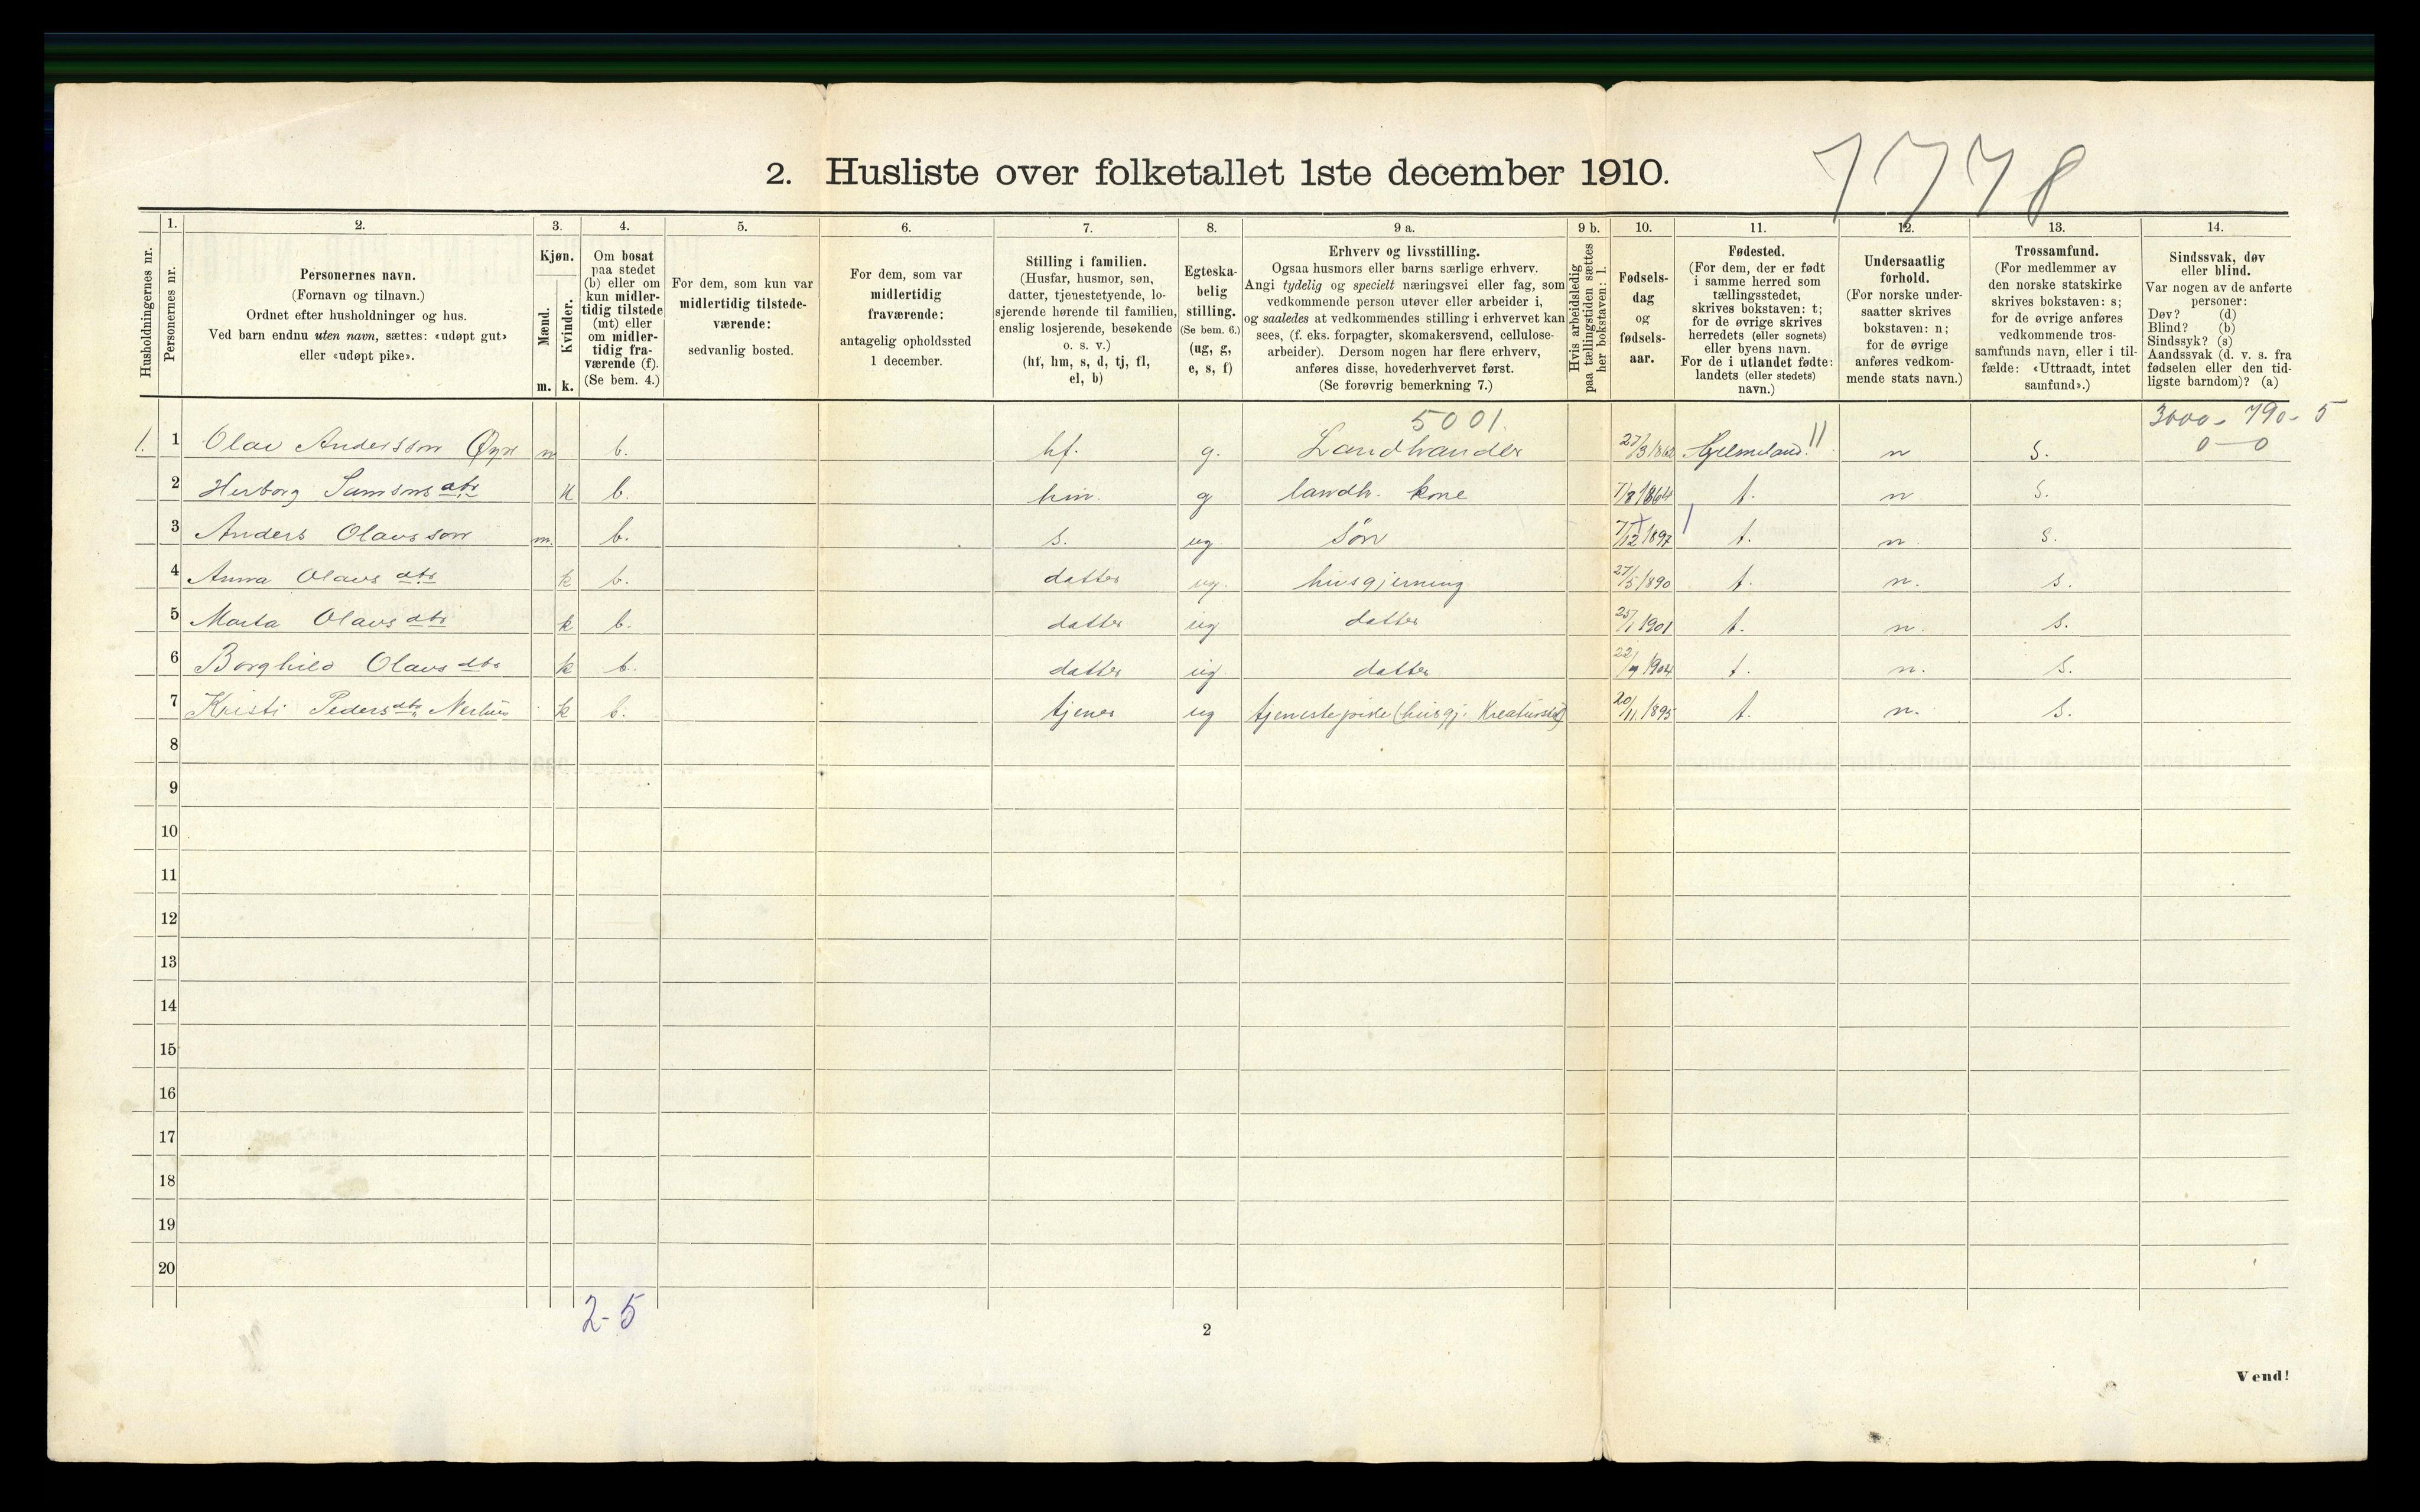 7778
2. Husliste over folketallet 1ste december 1910.
Husholdningernes nr.
1.
Personernes nr.
2.
Personernes navn.
(Fornavn og tilnavn.)
Ordnet efter husholdninger og hus.
Ved barn endnu uten navn, sættes: «udøpt gut»
eller «udøpt pike».
3.
Kjøn.
Mænd.
Kvinder.
m. k.
4.
Om bosat
paa stedet
(b) eller om
kun midler-
tidig tilstede
(mt) eller
om midler-
tidig fra-
værende (f).
(Se bem. 4.)
5.
For dem, som kun var
midlertidig tilstede-
værende:
sedvanlig bosted.
6.
For dem, som var
midlertidig
fraværende:
antagelig opholdssted
1 december.
7.
Stilling i familien.
(Husfar, husmor, søn,
datter, tjenestetyende, lo-
sjerende hørende til familien,
enslig losjerende, besøkende
o. s. v.)
(hf, hm, s, d, tj, fl,
el, b)
8.
Egteska-
belig
stilling.
(Se bem. 6.)
(ug, g,
e, s, f)
9 a.
Erhverv og livsstilling.
Ogsaa husmors eller barns særlige erhverv.
Angi tydelig og specielt næringsvei eller fag, som
vedkommende person utøver eller arbeider i,
og saaledes at vedkommendes stilling i erhvervet kan
sees, (f. eks. forpagter, skomakersvend, cellulose-
arbeider). Dersom nogen har flere erhverv,
anføres disse, hovederhvervet først.
(Se forøvrig bemerkning 7.)
9 b.
Hvis arbeidsledig
paa tællingstiden sættes
her bokstaven: l.
10.
Fødsels-
dag
og
fødsels-
aar.
11.
Fødested.
(For dem, der er født
i samme herred som
tællingsstedet,
skrives bokstaven: t;
for de øvrige skrives
herredets (eller sognets)
eller byens navn.
For de i utlandet fødte:
landets (eller stedets)
navn.)
12.
Undersaatlig
forhold.
(For norske under-
saatter skrives
bokstaven: n;
for de øvrige
anføres vedkom-
mende stats navn.)
13.
Trossamfund.
(For medlemmer av
den norske statskirke
skrives bokstaven: s;
for de øvrige anføres
vedkommende tros-
samfunds navn, eller i til-
fælde: «Uttraadt, intet
samfund».)
14.
Sindssvak, døv
eller blind.
Var nogen av de anførte
personer:
Døv? (d)
Blind? (b)
Sindssyk? (s)
Aandssvak (d. v. s. fra
fødselen eller den tid-
ligste barndom)? (a)
5001. 3000 - 790 - 5
1. 1 Olav Andersson Øyre m b. hf. g. Landhandler 27/3 1862 Hjelmeland. 11 n s. 0 - 0
2 Herborg Samsons dtr k b. hm. g landh. kone 7/8 1864 t. n s.
3 Anders Olavsson m. b. s. ug søn 7/12 1897 t. n. s.
4 Anna Olavs dtr k b. datter ug. husgjerning 27/5 1890 t. n. s.
5 Marta Olavs dtr k b. datter ug datter 25/1 1901 t. n. s.
6 Borghild Olavs dtr k b. datter ug. datter 22/9 1904 t. n. s.
7 Kristi Peders dtr k b. tjener ug tjenestepike (husgj. Kreaturstel) 20/11 1895 t. n. s.
8
9
10
11
12
13
14
15
16
17
18
19
20
2-5
2
Vend!